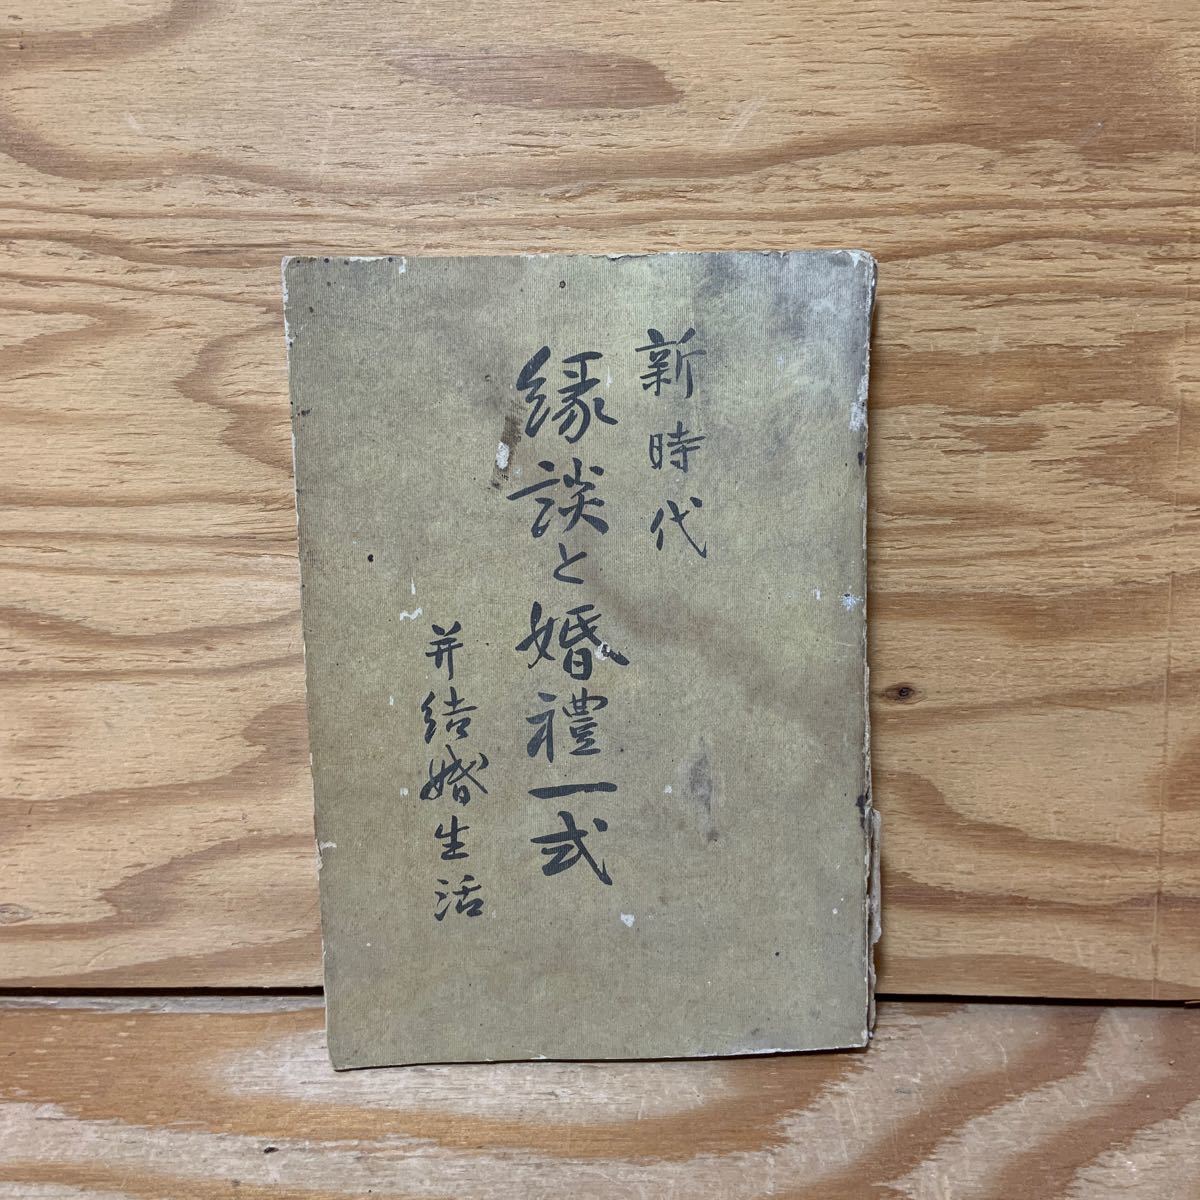 新時代
縁談と婚禮一式
并結婚生活